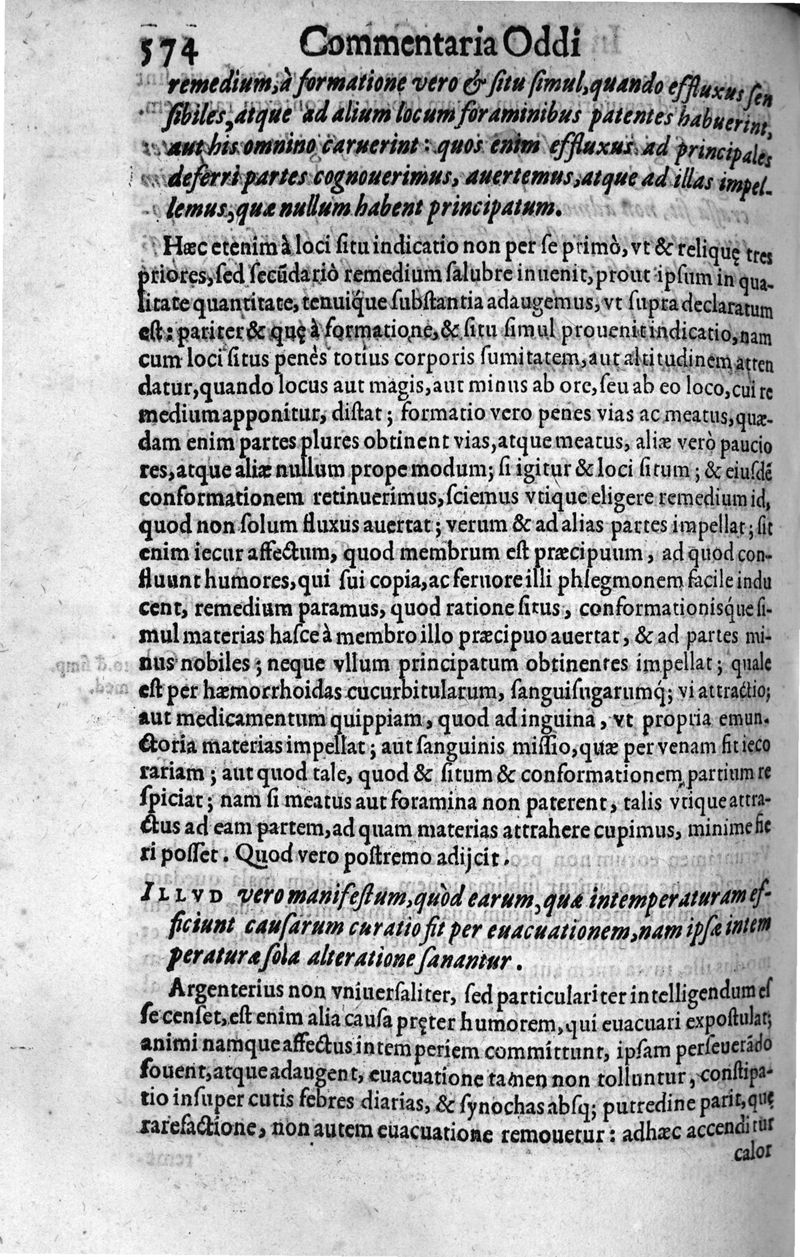 574 Commentaria Oddi
remedium, à formatione vero & ſitu ſimul, quando effluxus ſen
ſibiles, atque ad alium locum foraminibus patentes habuerint,
aut his omnino caruerint: quos enim effluxus ad principales
deferri partes cognouerimus, auertemus, atque ad illas impel-
lemus, quæ nullum habent principatum.
Hæc etenim à loci ſitu indicatio non per ſe primò, vt & reliquę tres
priores, ſed ſecũdariò remedium ſalubre inuenit, prout ipſum in qua-
litate quantitate, tenuiq́ue ſubſtantia adaugemus, vt ſupra declaratum
eſt: pariter & quę à formatione, & ſitu ſimul prouenit indicatio, nam
cum loci ſitus penès totius corporis ſumitatem, aut altitudinem atten
datur, quando locus aut magis, aut minus ab ore, ſeu ab eo loco, cui re
medium apponitur, diſtat; formatio vero penes vias ac meatus, quæ-
dam enim partes plures obtinent vias, atque meatus, aliæ verò paucio
res, atque aliæ nullum propemodum; ſi igitur & loci ſitum; & eiuſdē
conformationem retinuerimus, ſciemus vtique eligere remedium id,
quod non ſolum fluxus auertat; verum & ad alias partes impellat; ſit
enim iecur affectum, quod membrum eſt præcipuum, ad quod con-
fluunt humores, qui ſui copia, ac feruore illi phlegmonem facile indu
cent, remedium paramus, quod ratione ſitus, conformationisq́ue ſi-
mul materias haſce à membro illo præcipuo auertat, & ad partes mi-
nus nobiles; neque vllum principatum obtinentes impellat; quale
eſt per hæmorrhoidas cucurbitularum, ſanguiſugarumq́; vi attractio;
aut medicamentum quippiam, quod ad inguina, vt propria emun-
ctoria materias impellat; aut ſanguinis miſſio, quæ per venam fit ieco
rariam; aut quod tale, quod & ſitum & conformationem partium re
ſpiciat; nam ſi meatus aut foramina non paterent, talis vtique attra-
ctus ad eam partem, ad quam materias attrahere cupimus, minime fie
ri poſſet. Quod vero poſtremo adijcit.
ILLVD vero manifeſtum, quòd earum, quæ intemperaturam ef-
ficiunt cauſarum curatio fit per euacuationem, nam ipſæ intem
peraturæ ſola alteratione ſanantur.
Argenterius non vniuerſaliter, ſed particulariter intelligendum eſ
ſe cenſet, eſt enim alia cauſa pręter humorem, qui euacuari expoſtulat;
animi namque affectus intemperiem committunt, ipſam perſeuerãdo
fouent, atque adaugent, euacuatione tamen non tolluntur, conſtipa-
tio inſuper cutis febres diarias, & ſynochas absq; putredine parit, quę
rarefactione, non autem euacuatione remouetur: adhæc accenditur
calor